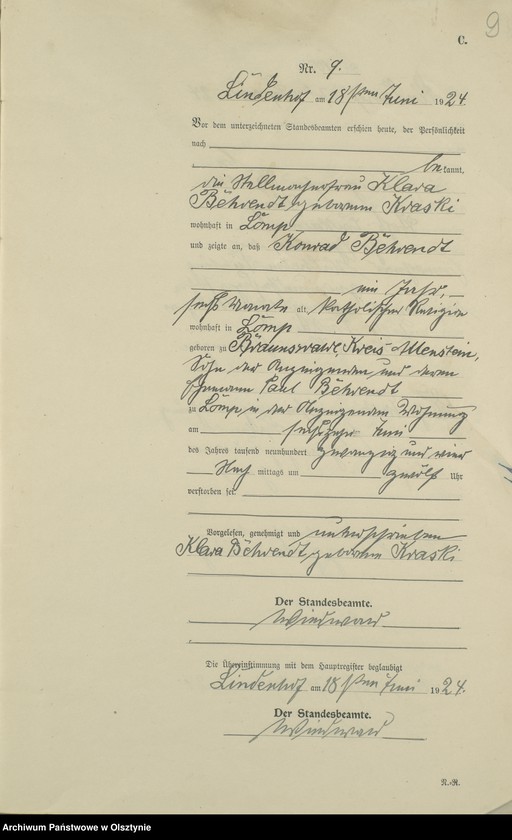 9
C.
Nr. 9.
Lindenhof am 18ten Juni 1924.
Vor dem unterzeichneten Standesbeamten erschien heute, der Persönlichkeit
nach
bekannt,
die Stellmacherfrau Klara
Behrendt geborene Kraski
wohnhaft in Lomp
und zeigte an, daß Konrad Behrendt
ein Jahr,
sechs Monate alt, katholischer Religion
wohnhaft in Lomp
geboren zu Braunswalde, Kreis Allenstein,
Sohn der Anzeigenden und deren
Ehemann Paul Behrendt
zu Lomp in der Anzeigenden Wohnung
am sechszehn Juni
des Jahres tausend neunhundert zwanzig und vier
Nach mittags um zwölf Uhr
verstorben sei.
Vorgelesen, genehmigt und unterschrieben
Klara Behrendt, geborene Kraski
Der Standesbeamte.
Die Übereinstimmung mit dem Hauptregister beglaubigt
Lindenhof am 18ten Juni 1924.
Der Standesbeamte.
N.-R.
Archiwum Państwowe w Olsztynie